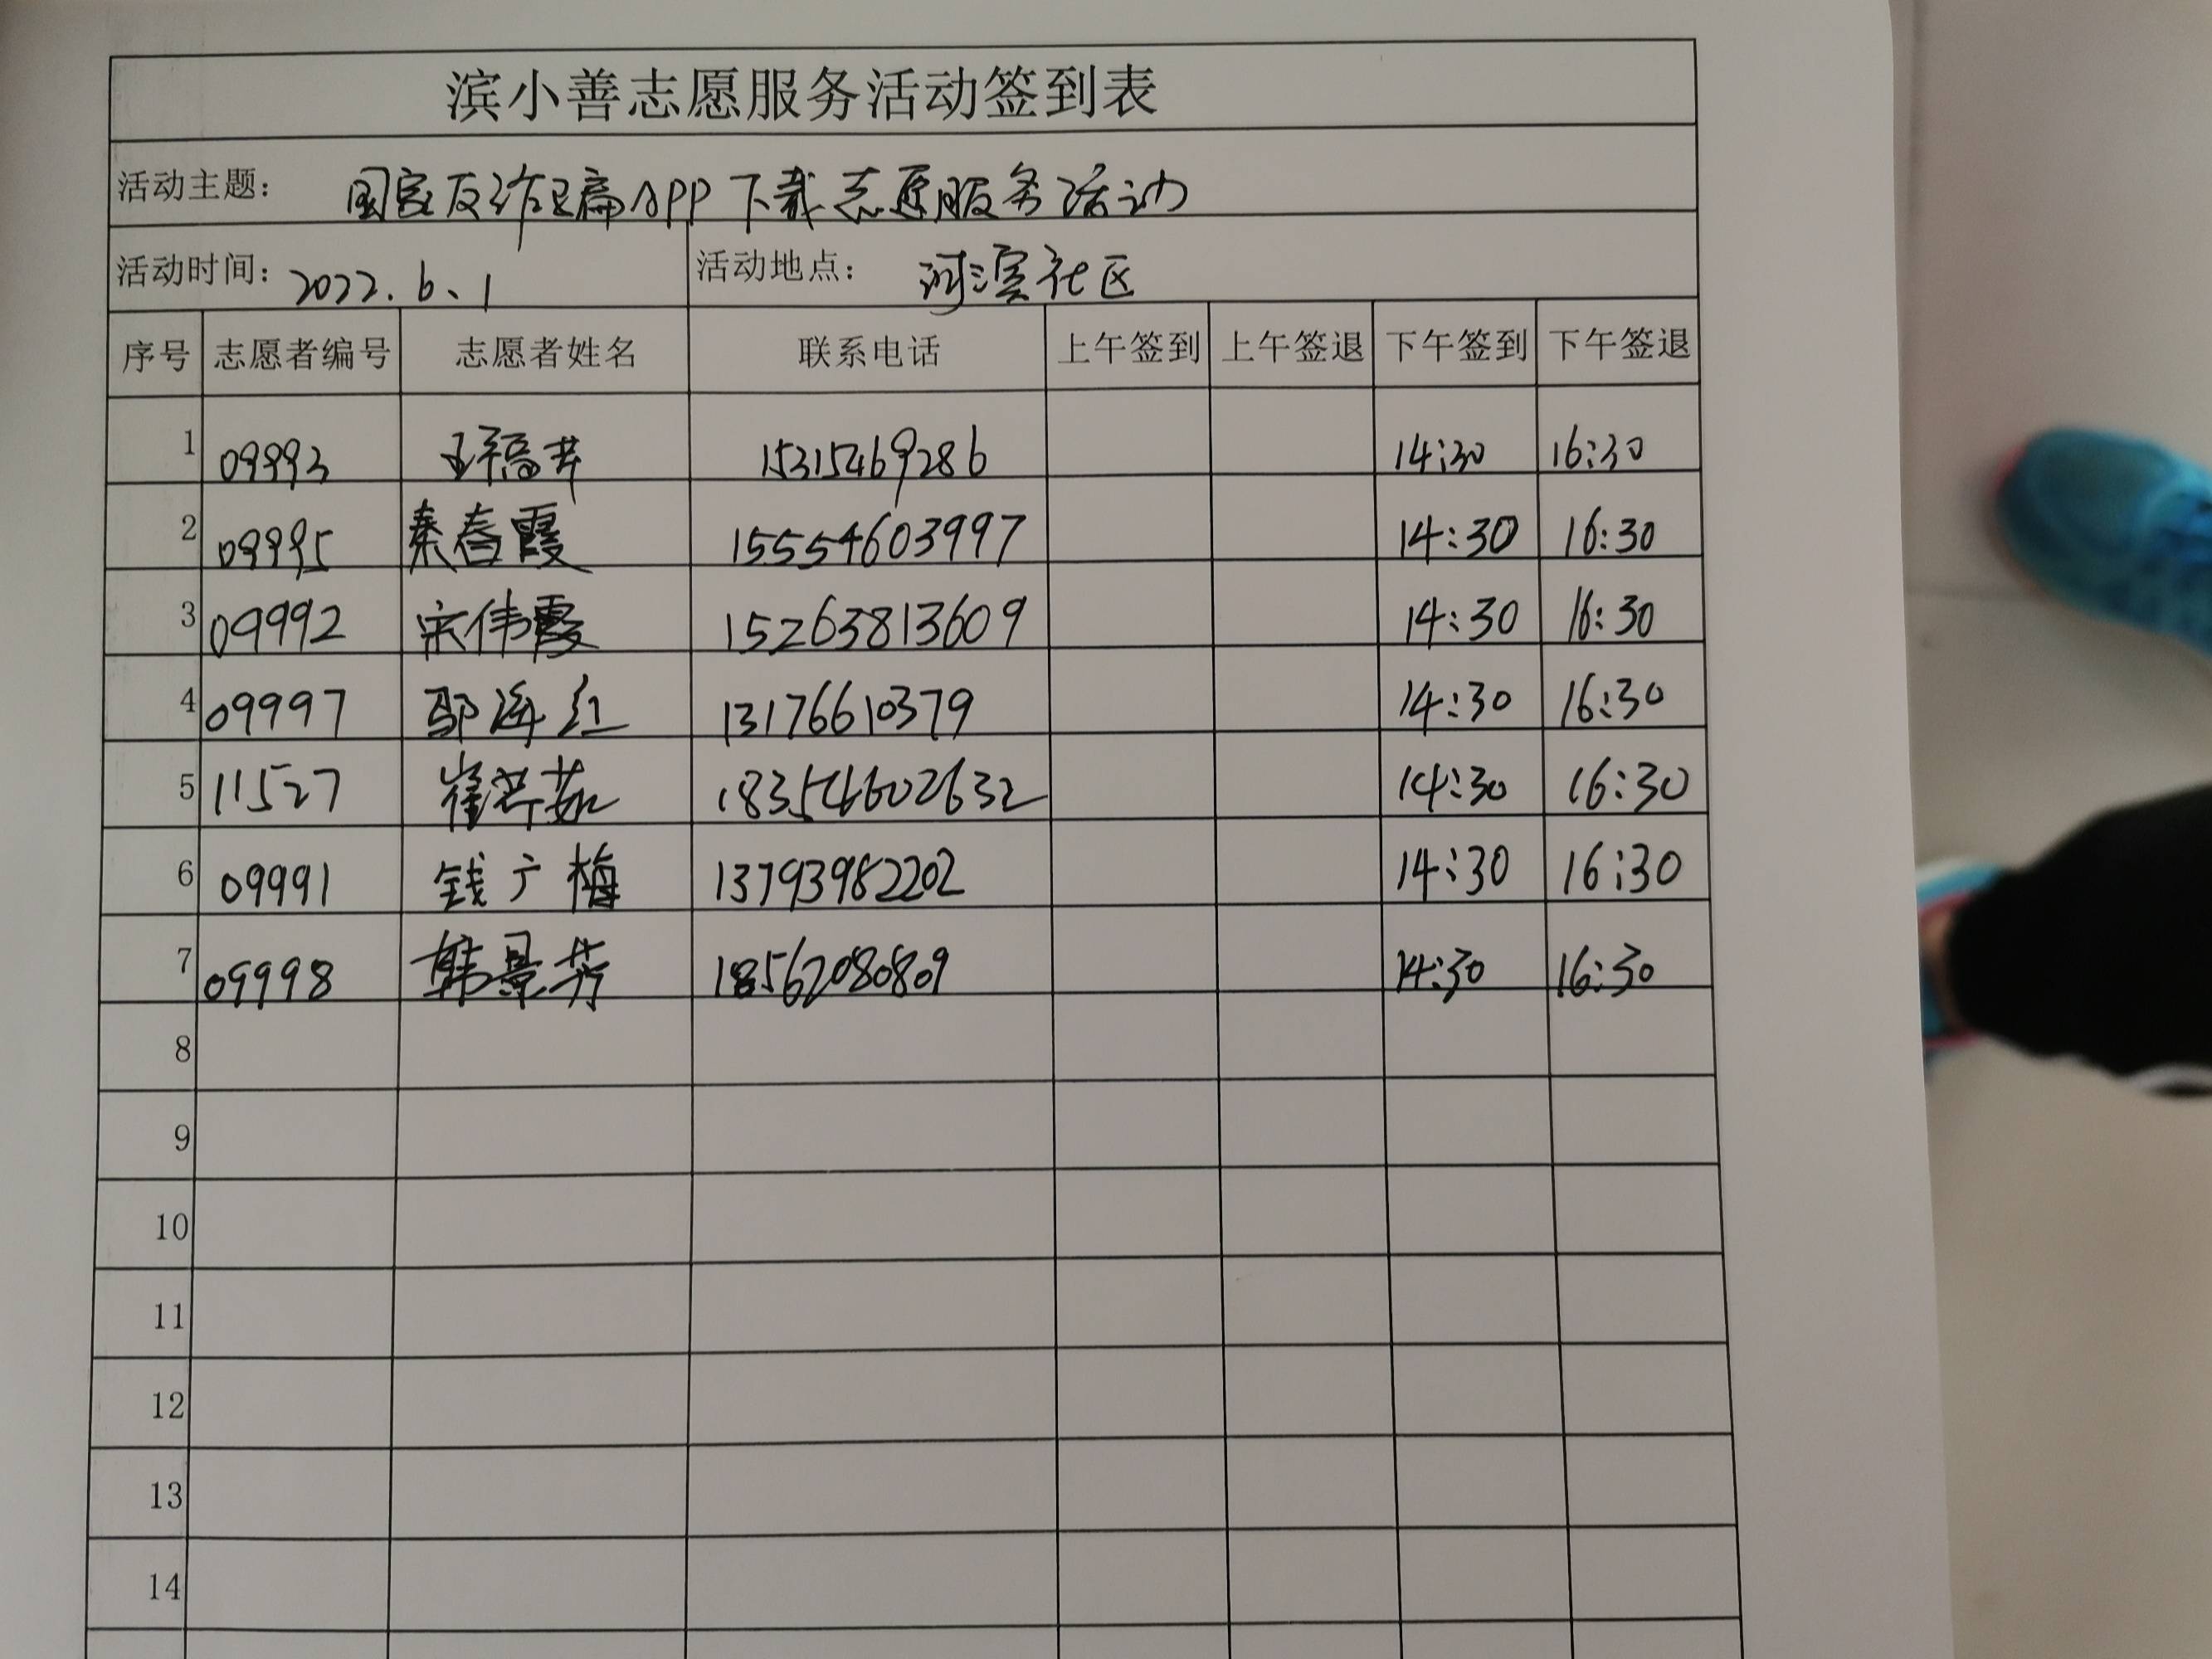 滨小善志愿服务活动签到表
活动主题: 国家反诈骗APP下载志愿服务活动
活动时间: 2022.6、1 活动地点: 河滨社区
序号 志愿者编号 志愿者姓名 联系电话 上午签到 上午签退 下午签到 下午签退
1 09993 15315469286 14:30 16:30
2 09995 秦春霞 15554603997 14:30 16:30
3 09992 宋伟霞 15263813609 14:30 16:30
4 09997 海红 13176610379 14:30 16:30
5 11527 崔芹茹 18354602632 14:30 16:30
6 09991 钱广梅 13793982202 14:30 16:30
7 09998 韩景芳 18562080809 14:30 16:30
8
9
10
11
12
13
14